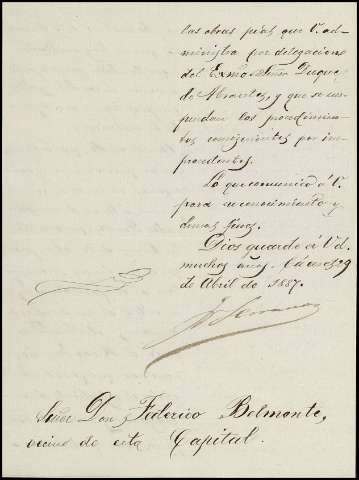 las obras pias que V. ad-
ministra por delegacion
del Exmo Señor Duque
de Abrantes, y que se sus-
pendan los procedimien-
tos consiguientes por im-
procedentes.
Lo que comunico á V.
para su conocimiento y
demas fines.
Dios guarde á Vd.
muchos años. Cáceres 29
de Abril de 1887.
Señor Don Federico Belmonte,
vecino de esta Capital.